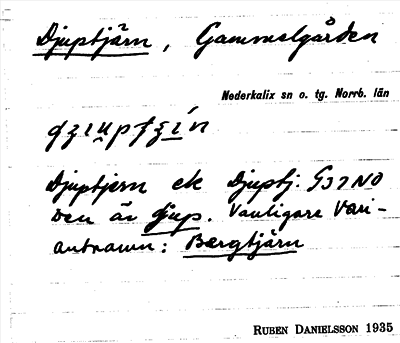 Djuptjärn, Gammelgården
Nederkalix sn o. tg. Norrb. län
Djuptjern ek Djuptj. G37NO
Den är djup. Vanligare Vari-
antnamn: Bergtjärn
RUBEN DANIELSSON 1935